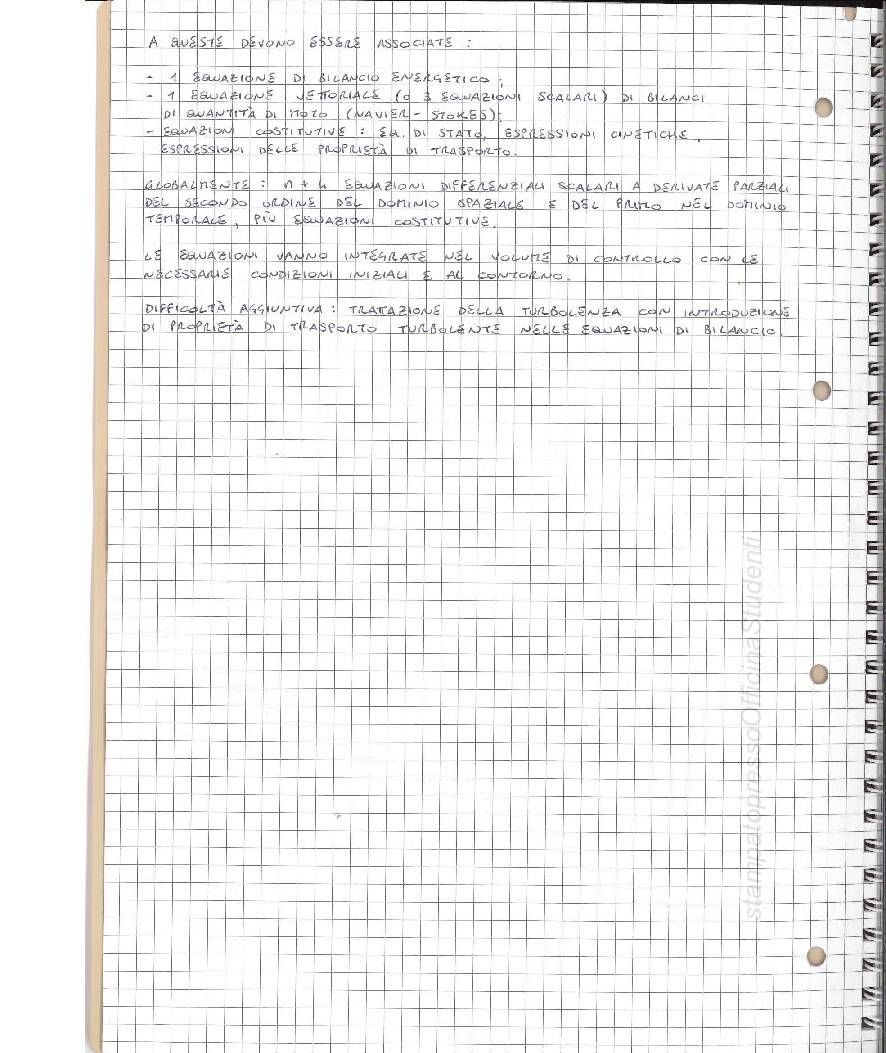 A QUESTE DEVONO ESSERE ASSOCIATE :
- 1 EQUAZIONE DI BILANCIO ENERGETICO ;
- 1 EQUAZIONE VETTORIALE (O 3 EQUAZIONI SCALARI) DI BILANCI
DI QUANTITÀ DI MOTO (NAVIER - STOKES);
- EQUAZIONI COSTITUTIVE : EQ. DI STATO, ESPRESSIONI CINETICHE,
ESPRESSIONI DELLE PROPRIETÀ DI TRASPORTO.
GLOBALMENTE : n + 4 EQUAZIONI DIFFERENZIALI SCALARI A DERIVATE PARZIALI
DEL SECONDO ORDINE DEL DOMINIO SPAZIALE E DEL PRIMO NEL DOMINIO
TEMPORALE, PIÙ EQUAZIONI COSTITUTIVE.
LE EQUAZIONI VANNO INTEGRATE NEL VOLUME DI CONTROLLO CON LE
NECESSARIE CONDIZIONI INIZIALI E AL CONTORNO.
DIFFICOLTÀ AGGIUNTIVA : TRATAZIONE DELLA TURBOLENZA CON INTRODUZIONE
DI PROPRIETÀ DI TRASPORTO TURBOLENTE NELLE EQUAZIONI DI BILANCIO.
stampatopressoOfficinaStudenti